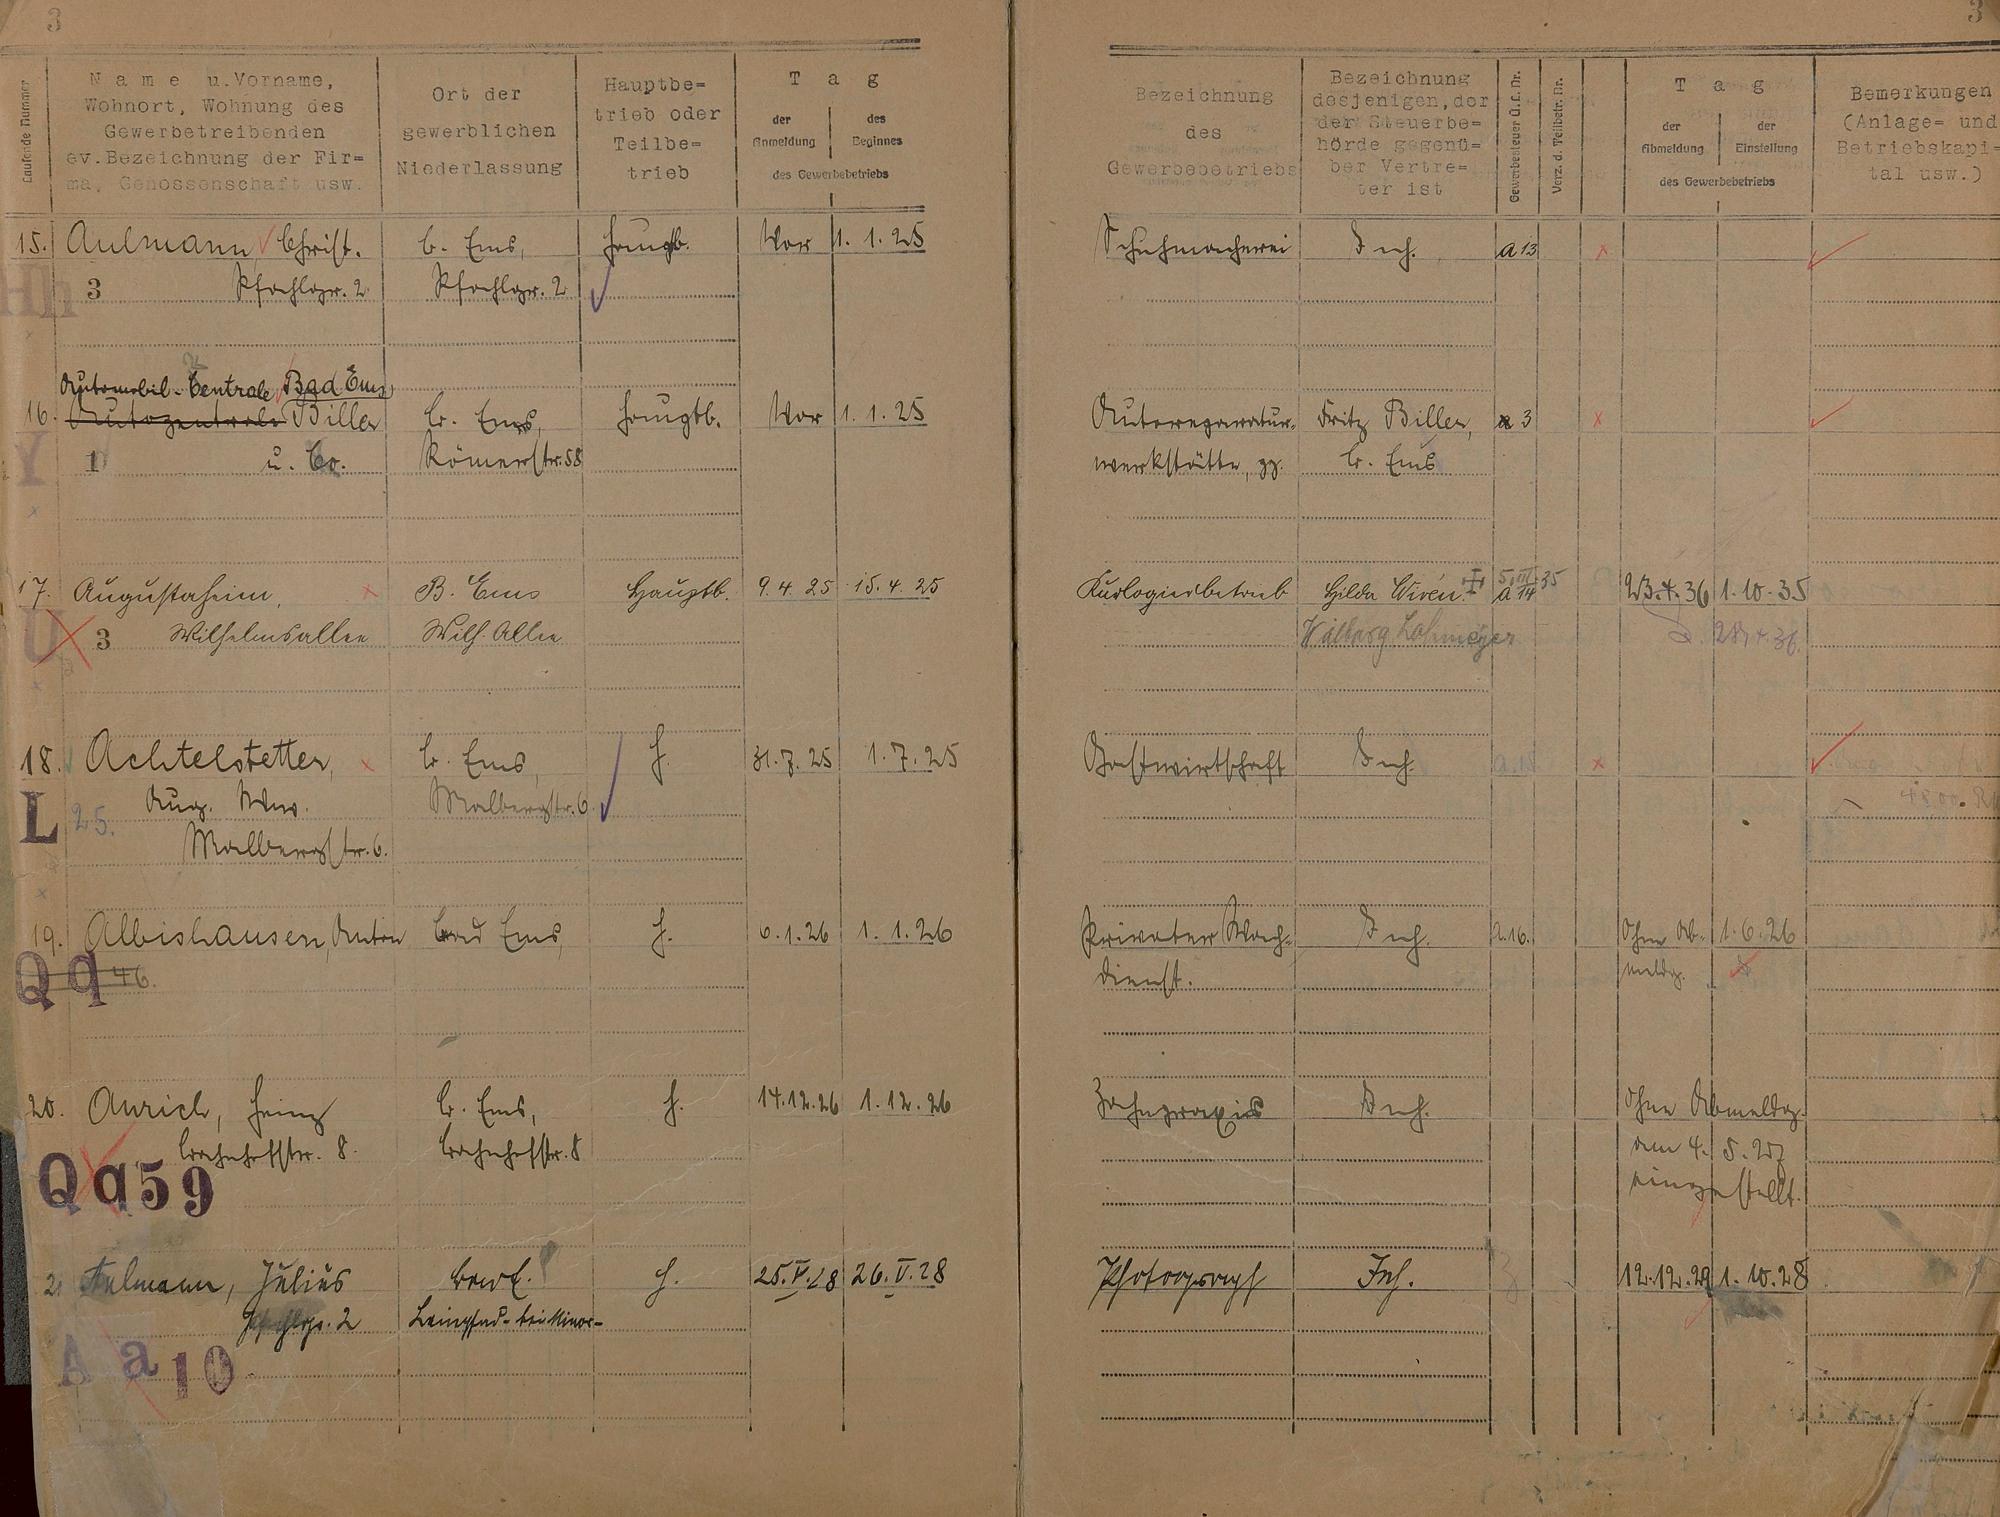 3
3
Laufende Nummer
Name u. Vorname,
Wohnort, Wohnung des
Gewerbetreibenden
ev. Bezeichnung der Fir=
ma, Genossenschaft usw.
Ort der
gewerblichen
Niederlassung
Hauptbe=
trieb oder
Teilbe=
trieb
Tag
der Anmeldung
des Beginnes
des Gewerbebetriebs
Bezeichnung
des
Gewerbebetriebs
Bezeichnung
desjenigen, der
der Steuerbe=
hörde gegenü=
ber Vertre=
ter ist
Gewerbesteuer Ü.L.Nr.
Verz. d. Teilbetr. Nr.
Tag
der Abmeldung
der Einstellung
des Gewerbebetriebs
Bemerkungen
(Anlage= und
Betriebskapi=
tal usw.)
15. Aulmann, Christ. B. Ems, Hauptb. Vor 1.1.25 Schuhmacherei Inh. a 13
Hh 3 Pfahlgr. 2 Pfahlgr. 2
Automobil-Centrale Bad Ems
16. Autozentrale Biller B. Ems, Hauptb. Vor 1.1.25 Autoreparatur- Fritz Biller, a 3
Y 1 u. Co. Römerstr. 58 werkstätte, B. Ems
17. Augustaheim, B. Ems Hauptb. 9.4.25 15.4.25 Kurlogierbetrieb Hilda Wirén. 5.III.35 a 14 23.4.36 1.10.35
U 3 Wilhelmsallee Wilh. Allee Walborg Lohmeyer 28.4.36.
18. Achtelstetter, B. Ems, H. 31.7.25 1.7.25 Gastwirtschaft Inh.
L 25. Aug. Wwe. Malbergstr. 6
Malbergstr. 6.
19. Albishausen, Anton Bad Ems, H. 6.1.26 1.1.26 Privater Wach- Inh. a.16. Ohne Ab- 1.6.26
Qq 46. dienst. meldg.
20. Aurich, Heinz B. Ems, H. 14.12.26 1.12.26 Zahnpraxis Inh. Ohne Abmeldg.
Bahnhofstr. 8. Bahnhofstr. 8 am 4.5.27
Qq59 eingestellt.
21 Aulmann, Julius H. 25.V.28 26.V.28 Photograph Inh. 12.12.29 1.10.28
Pfahlgr. 2 Leinpfad-
A a 10